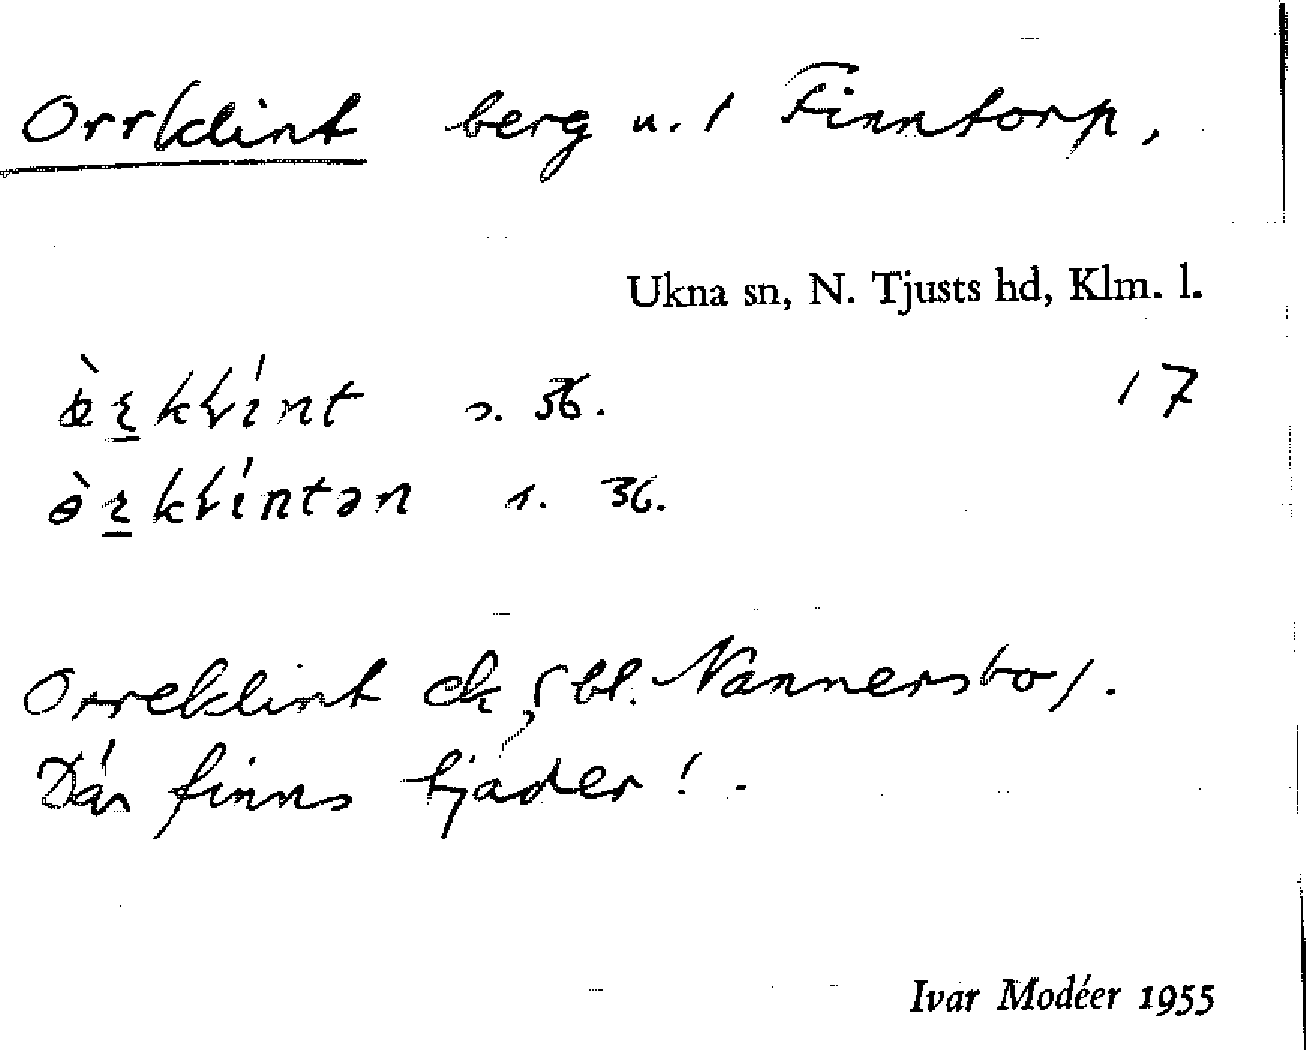 Orrklint berg u. / Finntorp,
Ukna sn, N. Tjusts hd, Klm. l.
s. 36. 17
s. 36.
Orreklint ek, bl. Nannersbo /.
Där finns tjäder!.
Ivar Modéer 1955